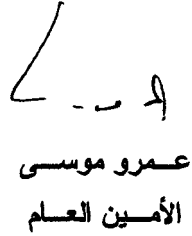 عمرو موسى
الأمين العام